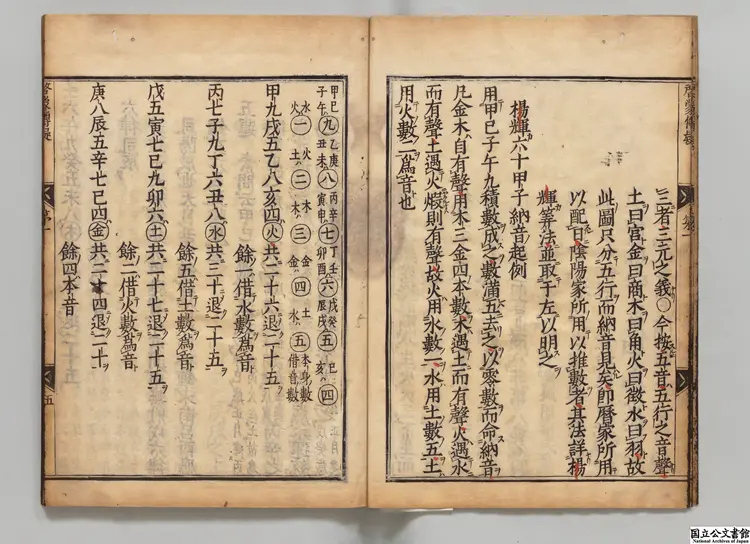 啓蒙傳疑
三者三元之義〇今按五音五行之音聲
土曰宮金曰商木曰角火曰徵水曰羽故
此圖只分五行而納音見矣即曆家所用
以配日陰陽家所用以推數者其法詳楊
輝筭法並取于左以明之
楊輝六十甲子納音起例
用甲巳子午九積數成之數滿五去之以零數而命納音
凡金木自有聲用木三金四本數水遇土而有聲火遇水
而有聲土遇火煅則有聲故火用水數一水用土數五土
用火數二爲音也
甲巳子午九乙庚丑未八丙辛寅申七丁壬卯酉六戊癸辰戌五巳亥四
水火一火土二木木三金金四土水五本身數借音數
甲九戌五乙八亥四火共二十六退二十五
餘一借水數爲音
丙七子九丁六丑八水共三十退二十五
餘五借土數爲音
戊五寅七巳九卯六土共二十七退二十五
餘二借火數爲音
庚八辰五辛七巳四金共二十四退二十
餘四本音
啓蒙傳疑
五
国立公文書館
National Archives of Japan